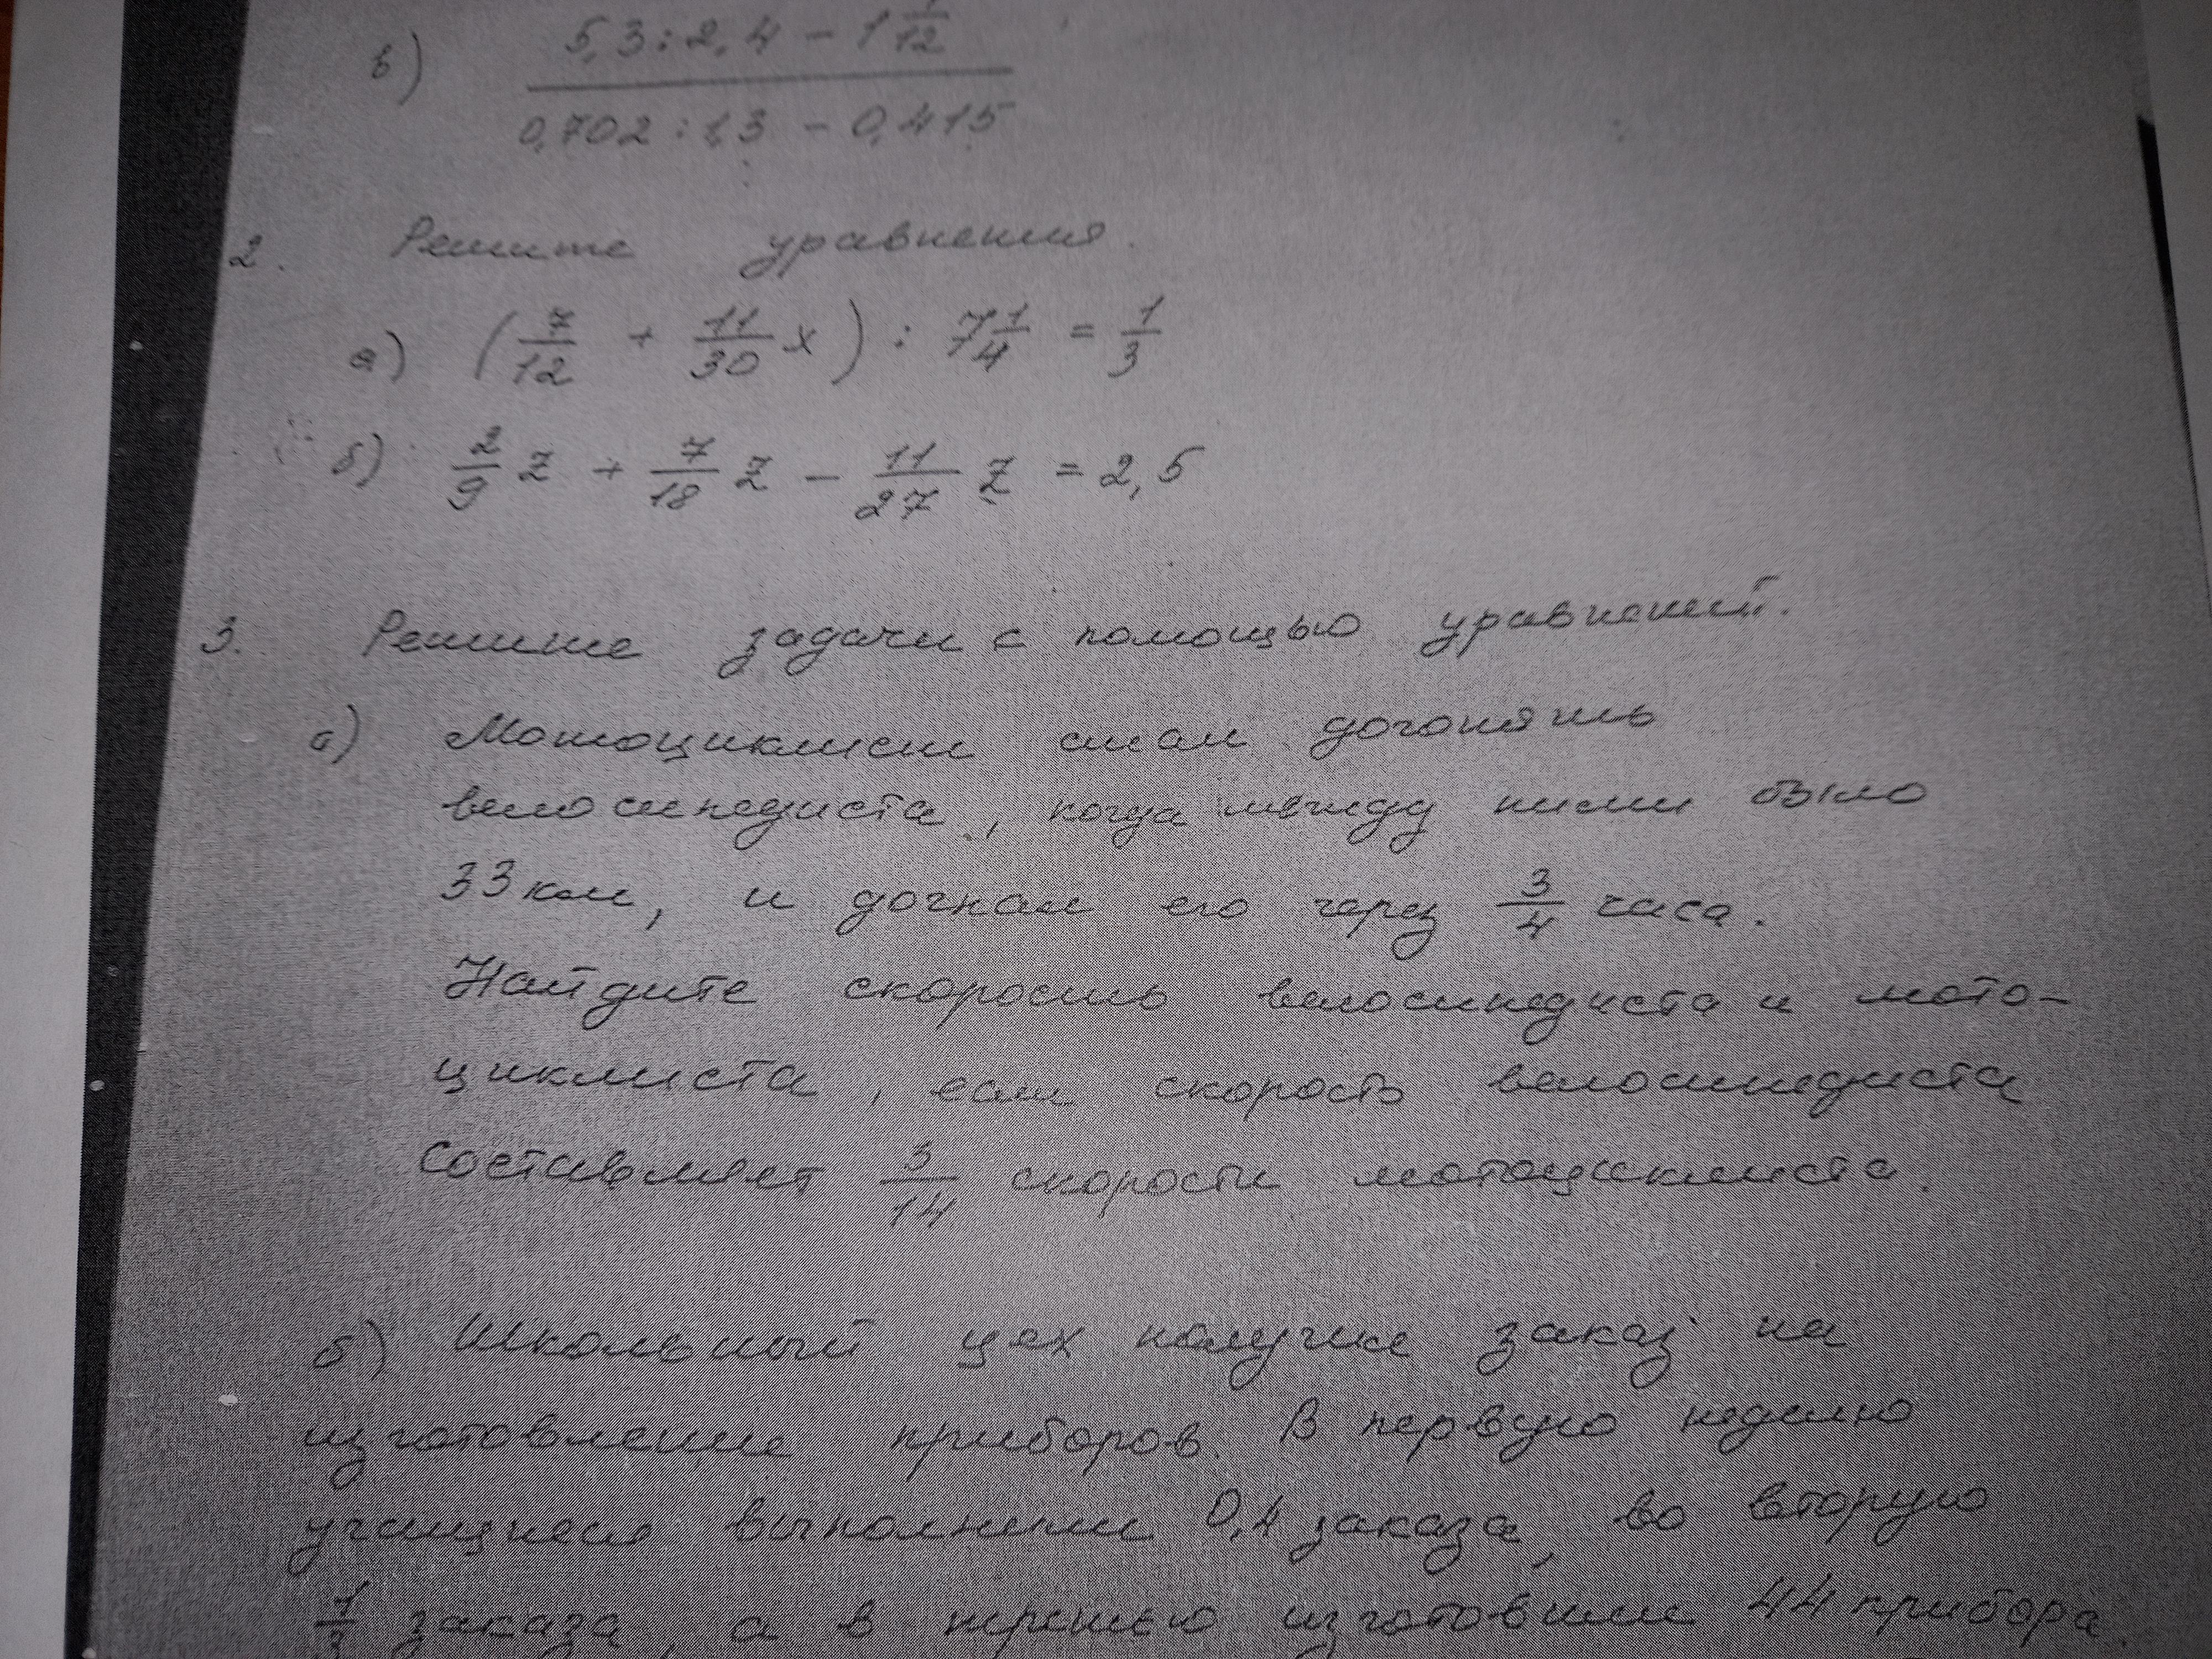 в) (5,3 : 2,4 - 1 1/12) / (0,702 : 1,3 - 0,415)
2. Решите уравнения.
а) (7/12 + 11/30 x) : 7 1/4 = 1/3
б) 2/9 z + 7/18 z - 11/27 z = 2,5
3. Решите задачи с помощью уравнений.
а) Мотоциклист стал догонять
велосипедиста, когда между ними было
33 км, и догнал его через 3/4 часа.
Найдите скорость велосипедиста и мото-
циклиста, если скорость велосипедиста
составляет 3/14 скорости мотоциклиста.
б) Школьный цех получил заказ на
изготовление приборов. В первую неделю
учащиеся выполнили 0,4 заказа, во вторую
1/3 заказа, а в третью изготовили 44 прибора.